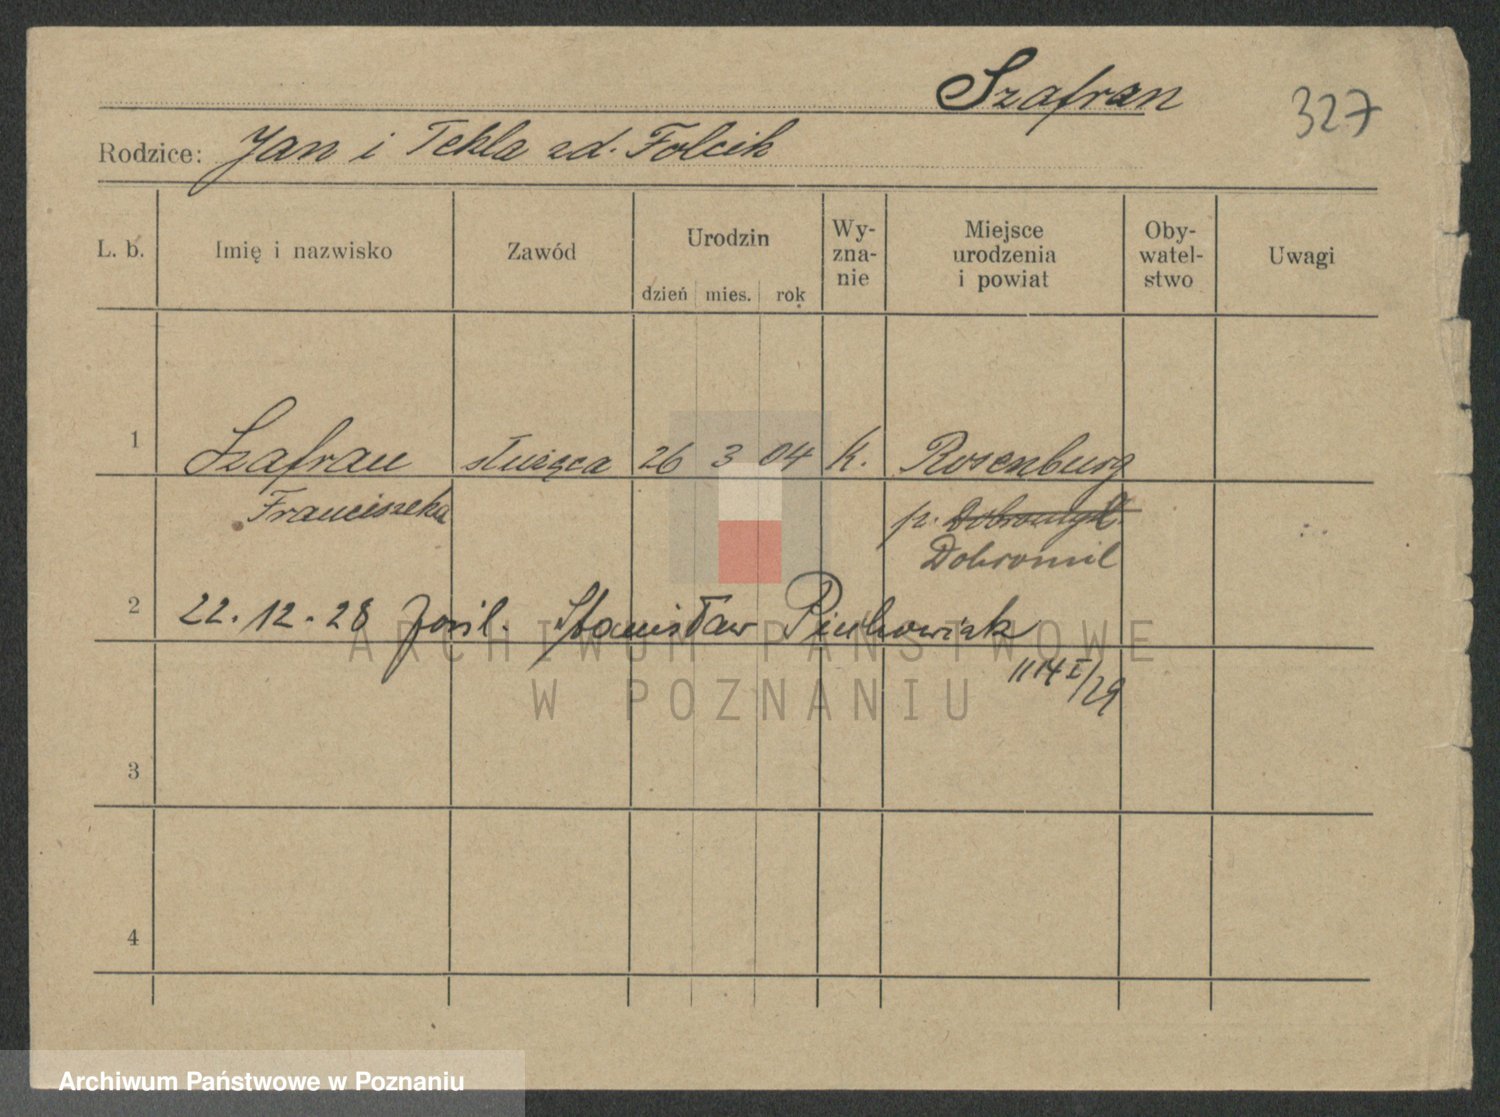 Szafran
327
Rodzice: Jan i Tekla zd. Folcik
L. b. Imię i nazwisko Zawód Urodzin dzień mies. rok Wy-zna-nie Miejsce urodzenia i powiat Oby-watel-stwo Uwagi
1 Szafran służąca 26 3 04 k. Rosenburg
Franciszka p. Dobromyl
Dobromil
2 22.12.28 Stanisław
1114 I/29
3
4
ARCHIWUM PAŃSTWOWE
W POZNANIU
Archiwum Państwowe w Poznaniu